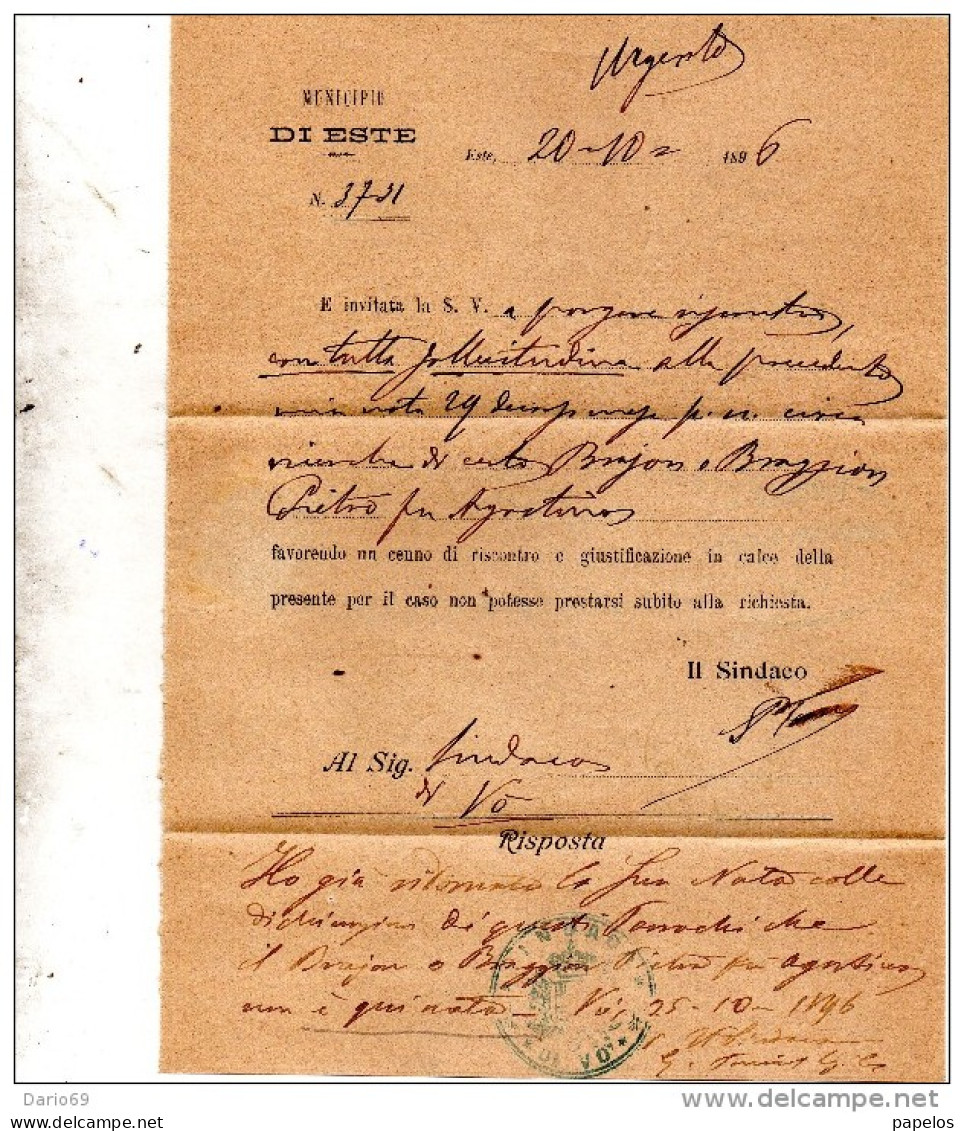 Urgente
MUNICIPIO
DI ESTE
Este, 20-10- 1896
N. 3731
E invitata la S. V. a porgere riscontro,
con tutta sollecitudine alla precedente
mia nota 29 decorso mese p. n. circa
ricerche di certo Brajon o Braggion
Pietro fu Agostino
favorendo un cenno di riscontro e giustificazione in calce della
presente per il caso non potesse prestarsi subito alla richiesta.
Il Sindaco
Al Sig. Sindaco
di Vò
Risposta
Ho già ritornata la Sua Nota colle
dichiarazioni di questi Parrochi che
il Brajon o Braggion Pietro fu Agostino
non è qui nato - Vò, 25-10-1896
Il Sindaco
VO
Dario69
www.delcampe.net
papelos